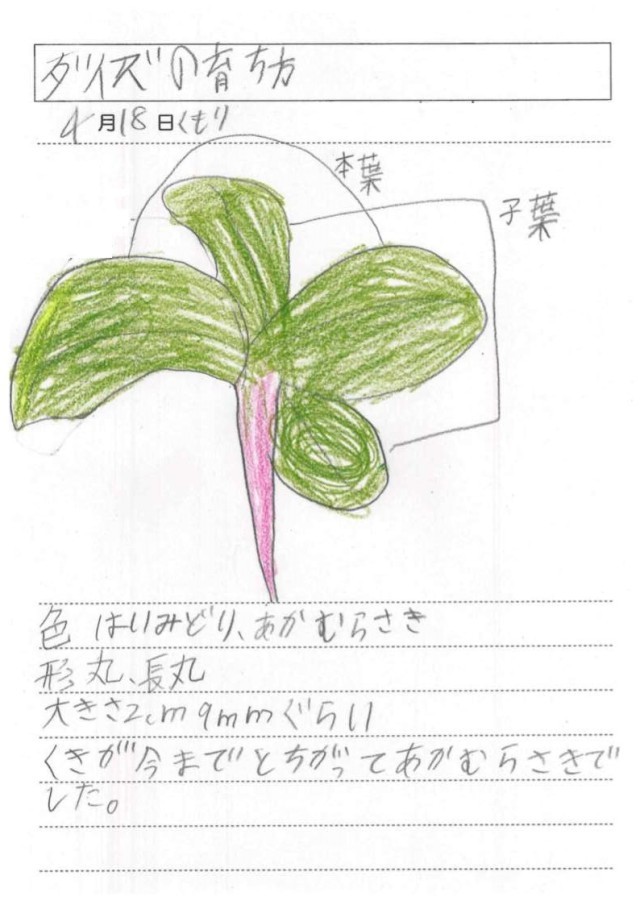 ダイズの育ち方
4月18日くもり
本葉
子葉
色 はいみどり、あかむらさき
形 丸、長丸
大きさ2cm9mmぐらい
くきが今までとちがってあかむらさきで
した。